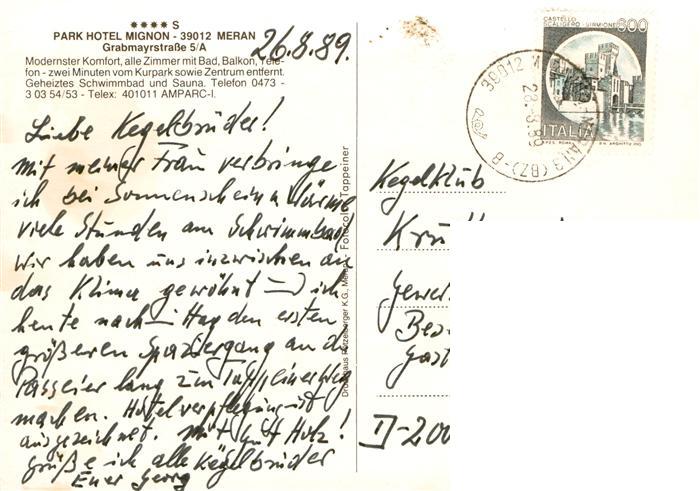 ★★★★ S
PARK HOTEL MIGNON - 39012 MERAN
Grabmayrstraße 5/A
Modernster Komfort, alle Zimmer mit Bad, Balkon, Tele-
fon - zwei Minuten vom Kurpark sowie Zentrum entfernt.
Geheiztes Schwimmbad und Sauna. Telefon 0473 -
3 03 54/53 - Telex: 401011 AMPARC-I.
26.8.89.
Liebe Kegelbrüder!
Mit meiner Frau verbringe
ich bei Sonnenschein u Wärme
viele Stunden am Schwimmbad
Wir haben uns inzwischen an
das Klima gewöhnt ich
heute nach den ersten
größeren Spaziergang an der
Passeier lang zum Tappeinerweg
machen. Hotelverpflegung ist
ausgezeichnet. Mit Gut Holz!
grüße ich alle Kegelbrüder
Euer Georg
Fotocolor Tappeiner
K.G., Meran
CASTELLO
SCALIGERO - SIRMIONE
600
ITALIA
I.P.Z.S. ROMA
39012
28.8.89
(BZ)-B
Kegelklub
Kru
Gewer
Bez
Gast
D-200